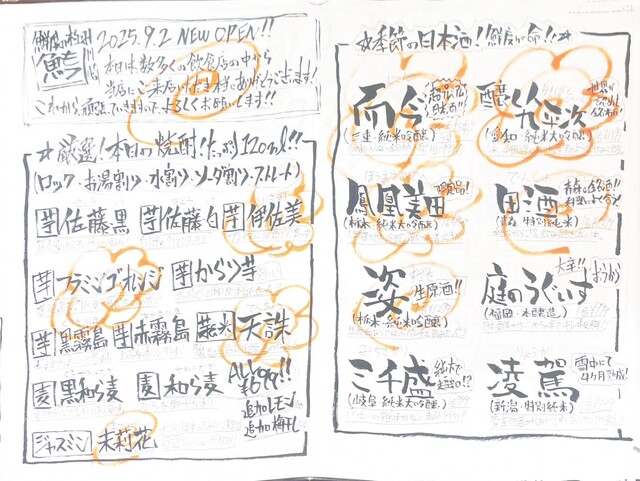 2025.9.2 NEW OPEN!!
本日は数多くの飲食店の中から
当店にご来店いただき本当にありがとうございます!
これから頑張っていきますのでよろしくお願いします!!
☆厳選!本日の焼酎!たっぷり120ml!!
(ロック・お湯割り・水割り・ソーダ割り・ストレート)
芋 佐藤黒 芋 佐藤白 芋 伊佐美
芋 フラミンゴオレンジ 芋 からり芋
芋 黒霧島 芋 赤霧島 天誅
麦 黒和ら麦 麦 和ら麦
ALL
¥699!!
追加レモン
追加梅干し
ジャスミン 茉莉花
☆季節の日本酒!鮮度が命!!☆
而今
(三重・純米吟醸)
醸し人九平次
(愛知・純米大吟醸)
鳳凰美田
(栃木・純米大吟醸)
田酒
(青森・特別純米)
姿
生原酒!!
(栃木・純米吟醸)
庭のうぐいす
大辛!!
(福岡・本醸造)
三千盛
(岐阜・純米大吟醸)
凌駕
雪中にて
4ヶ月熟成!
(新潟・特別純米)